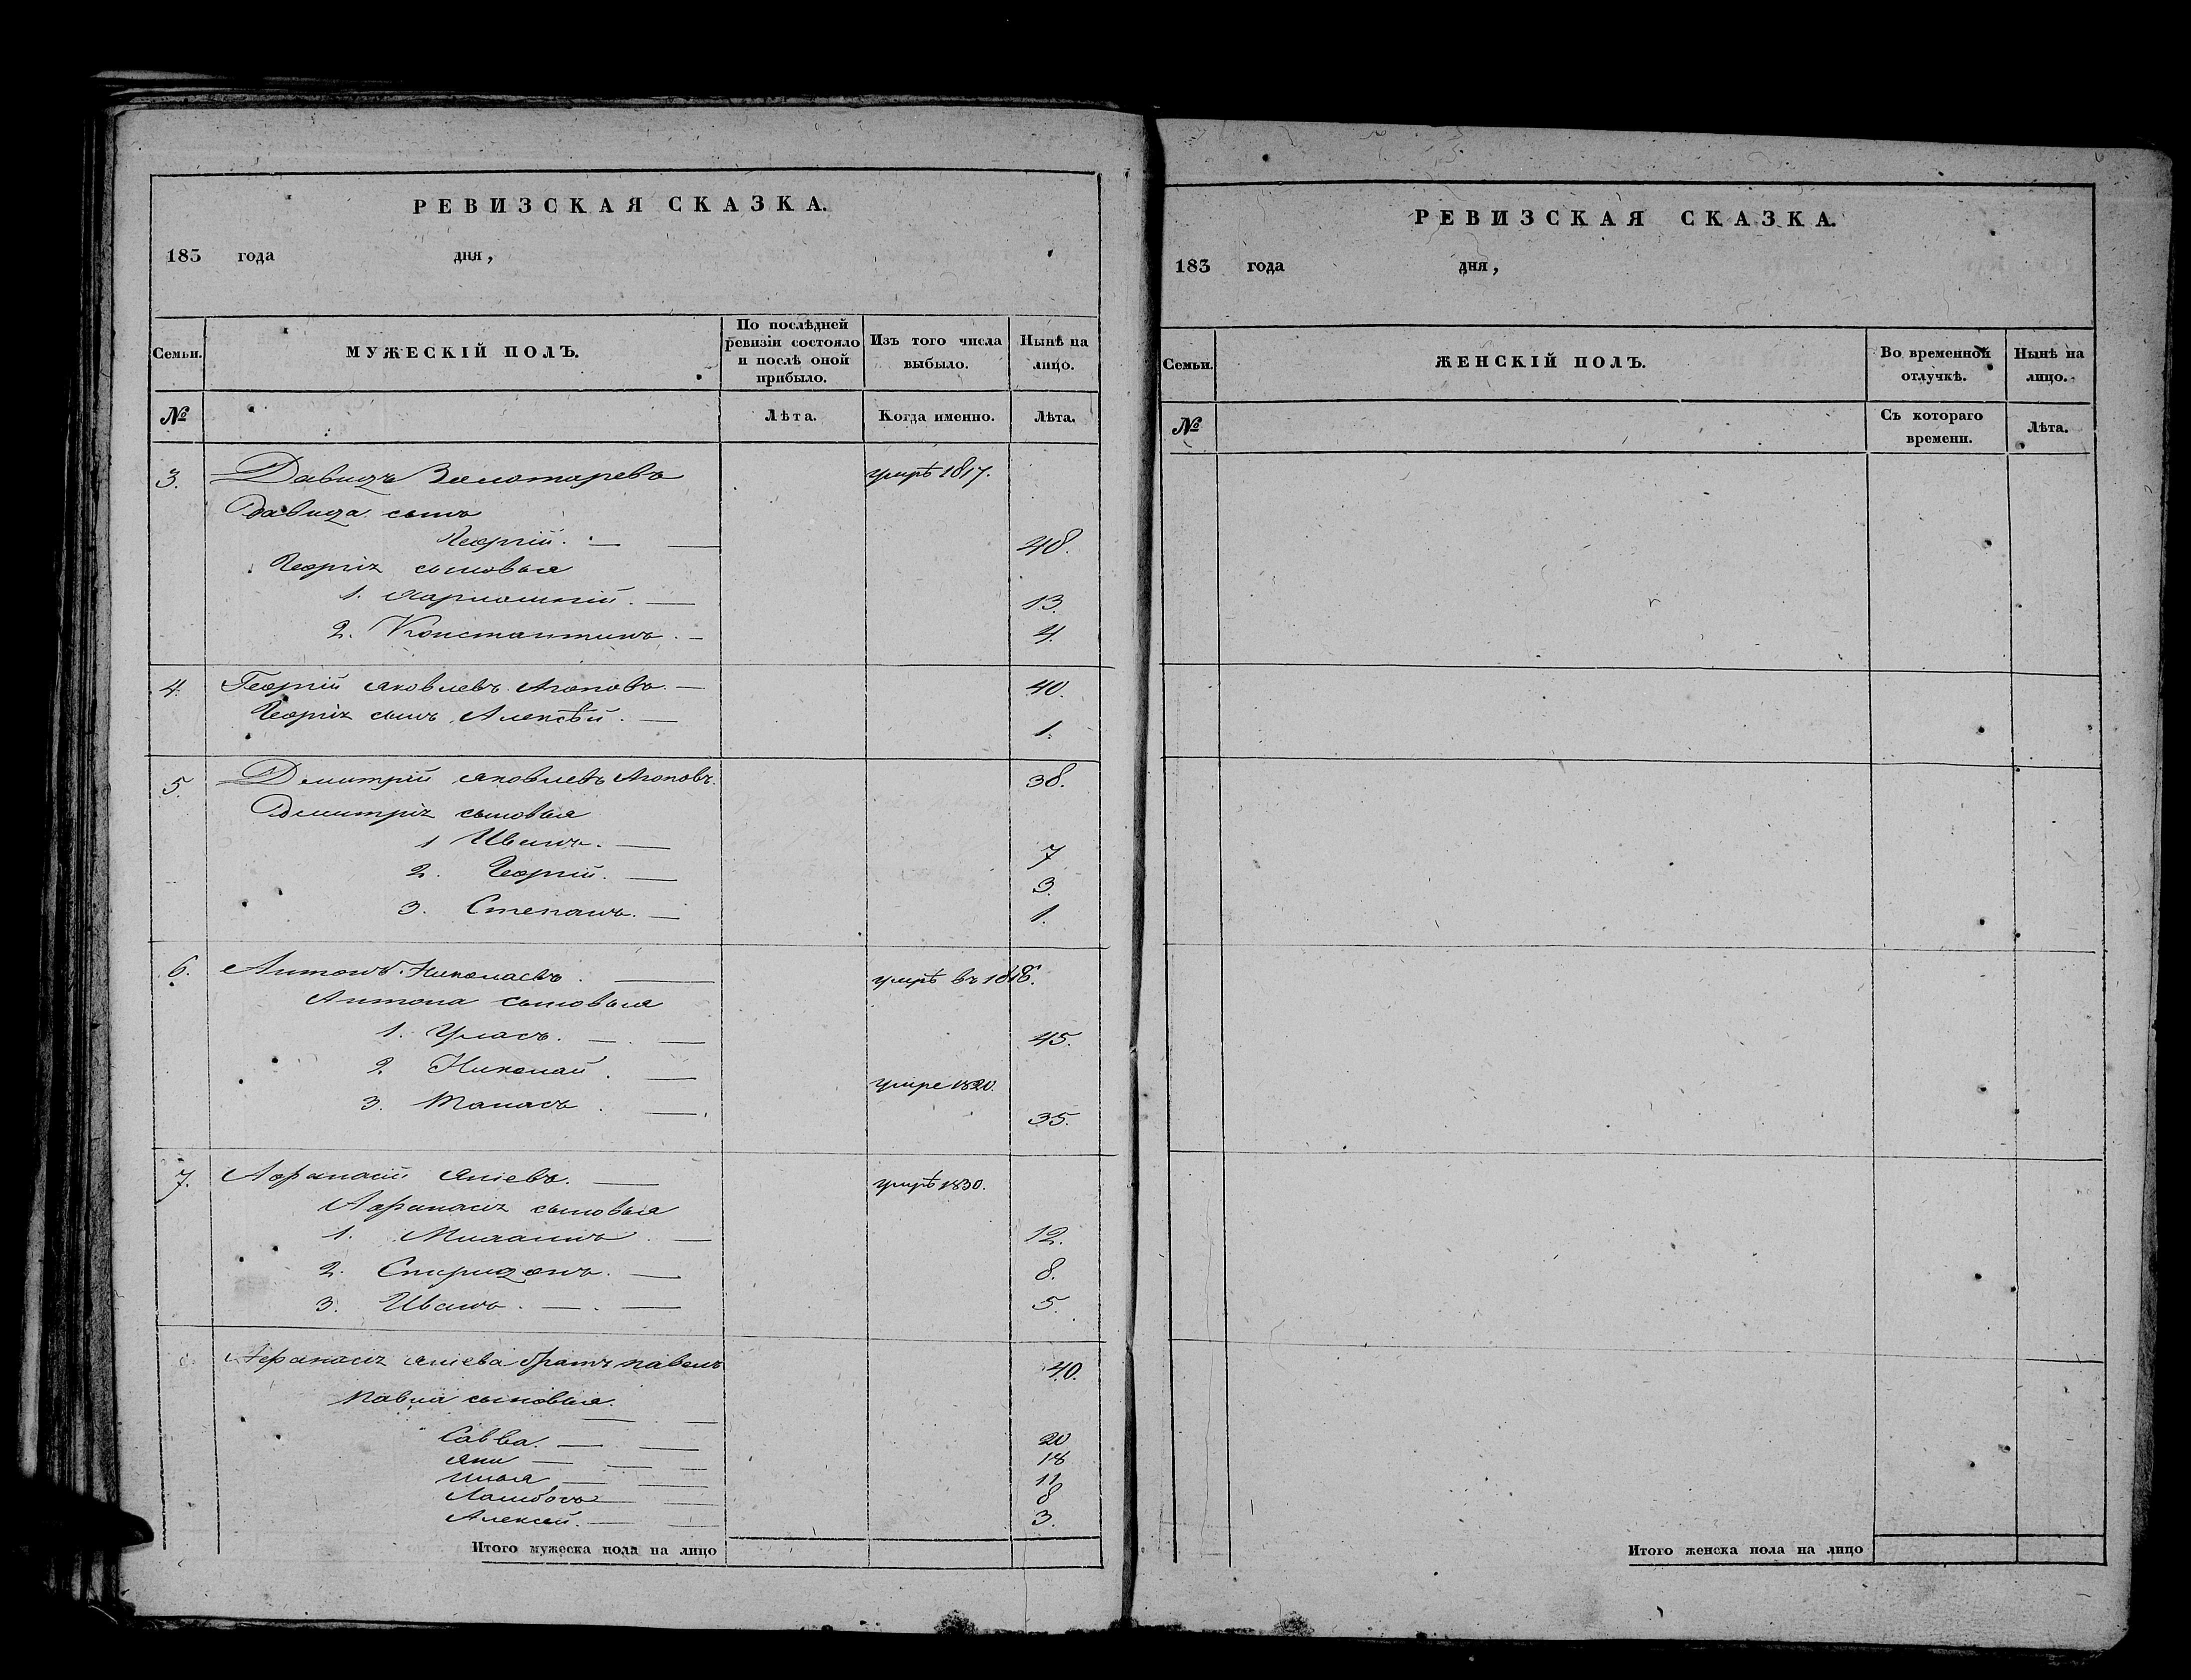 РЕВИЗСКАЯ СКАЗКА.
183 года дня,
Семьи. МУЖЕСКІЙ ПОЛЪ. По послѣдней ревизіи состояло и послѣ оной прибыло. Изъ того числа выбыло. Нынѣ на лицо.
№ Лѣта. Когда именно. Лѣта.
3. Давидъ Золотаревъ умрѣ 1817.
Давида сынъ
Георгій. 48.
Георгія сыновья
1. Харлампій. 13.
2. Константинъ. 4.
4. Георгій Яковлевъ Агоповъ. 40.
Георгія сынъ Алексѣй. 1.
5. Дмитрій Яковлевъ Агоповъ. 38.
Дмитрія сыновья
1 Иванъ. 7
2. Георгій. 3.
3. Степанъ. 1.
6. Антонъ Николаевъ. умрѣ въ 1818.
Антона сыновья
1. Уласъ. 45.
2. Николай. умре 1820.
3. Танасъ. 35.
7. Афанасій Яніевъ. умрѣ 1830.
Афанасія сыновья
1. 12.
2. Спиридонъ. 8.
3. Иванъ. 5.
Афанасія Яніева братъ Павелъ 40.
Павла сыновья.
Савва. 20
Яни 18
Илья 11
Ламбосъ 8
Алексей. 3.
Итого мужеска пола на лицо
РЕВИЗСКАЯ СКАЗКА.
183 года дня,
Семьи. ЖЕНСКІЙ ПОЛЪ. Во временной отлучкѣ. Нынѣ на лицо.
№ Съ котораго времени. Лѣта.
Итого женска пола на лицо